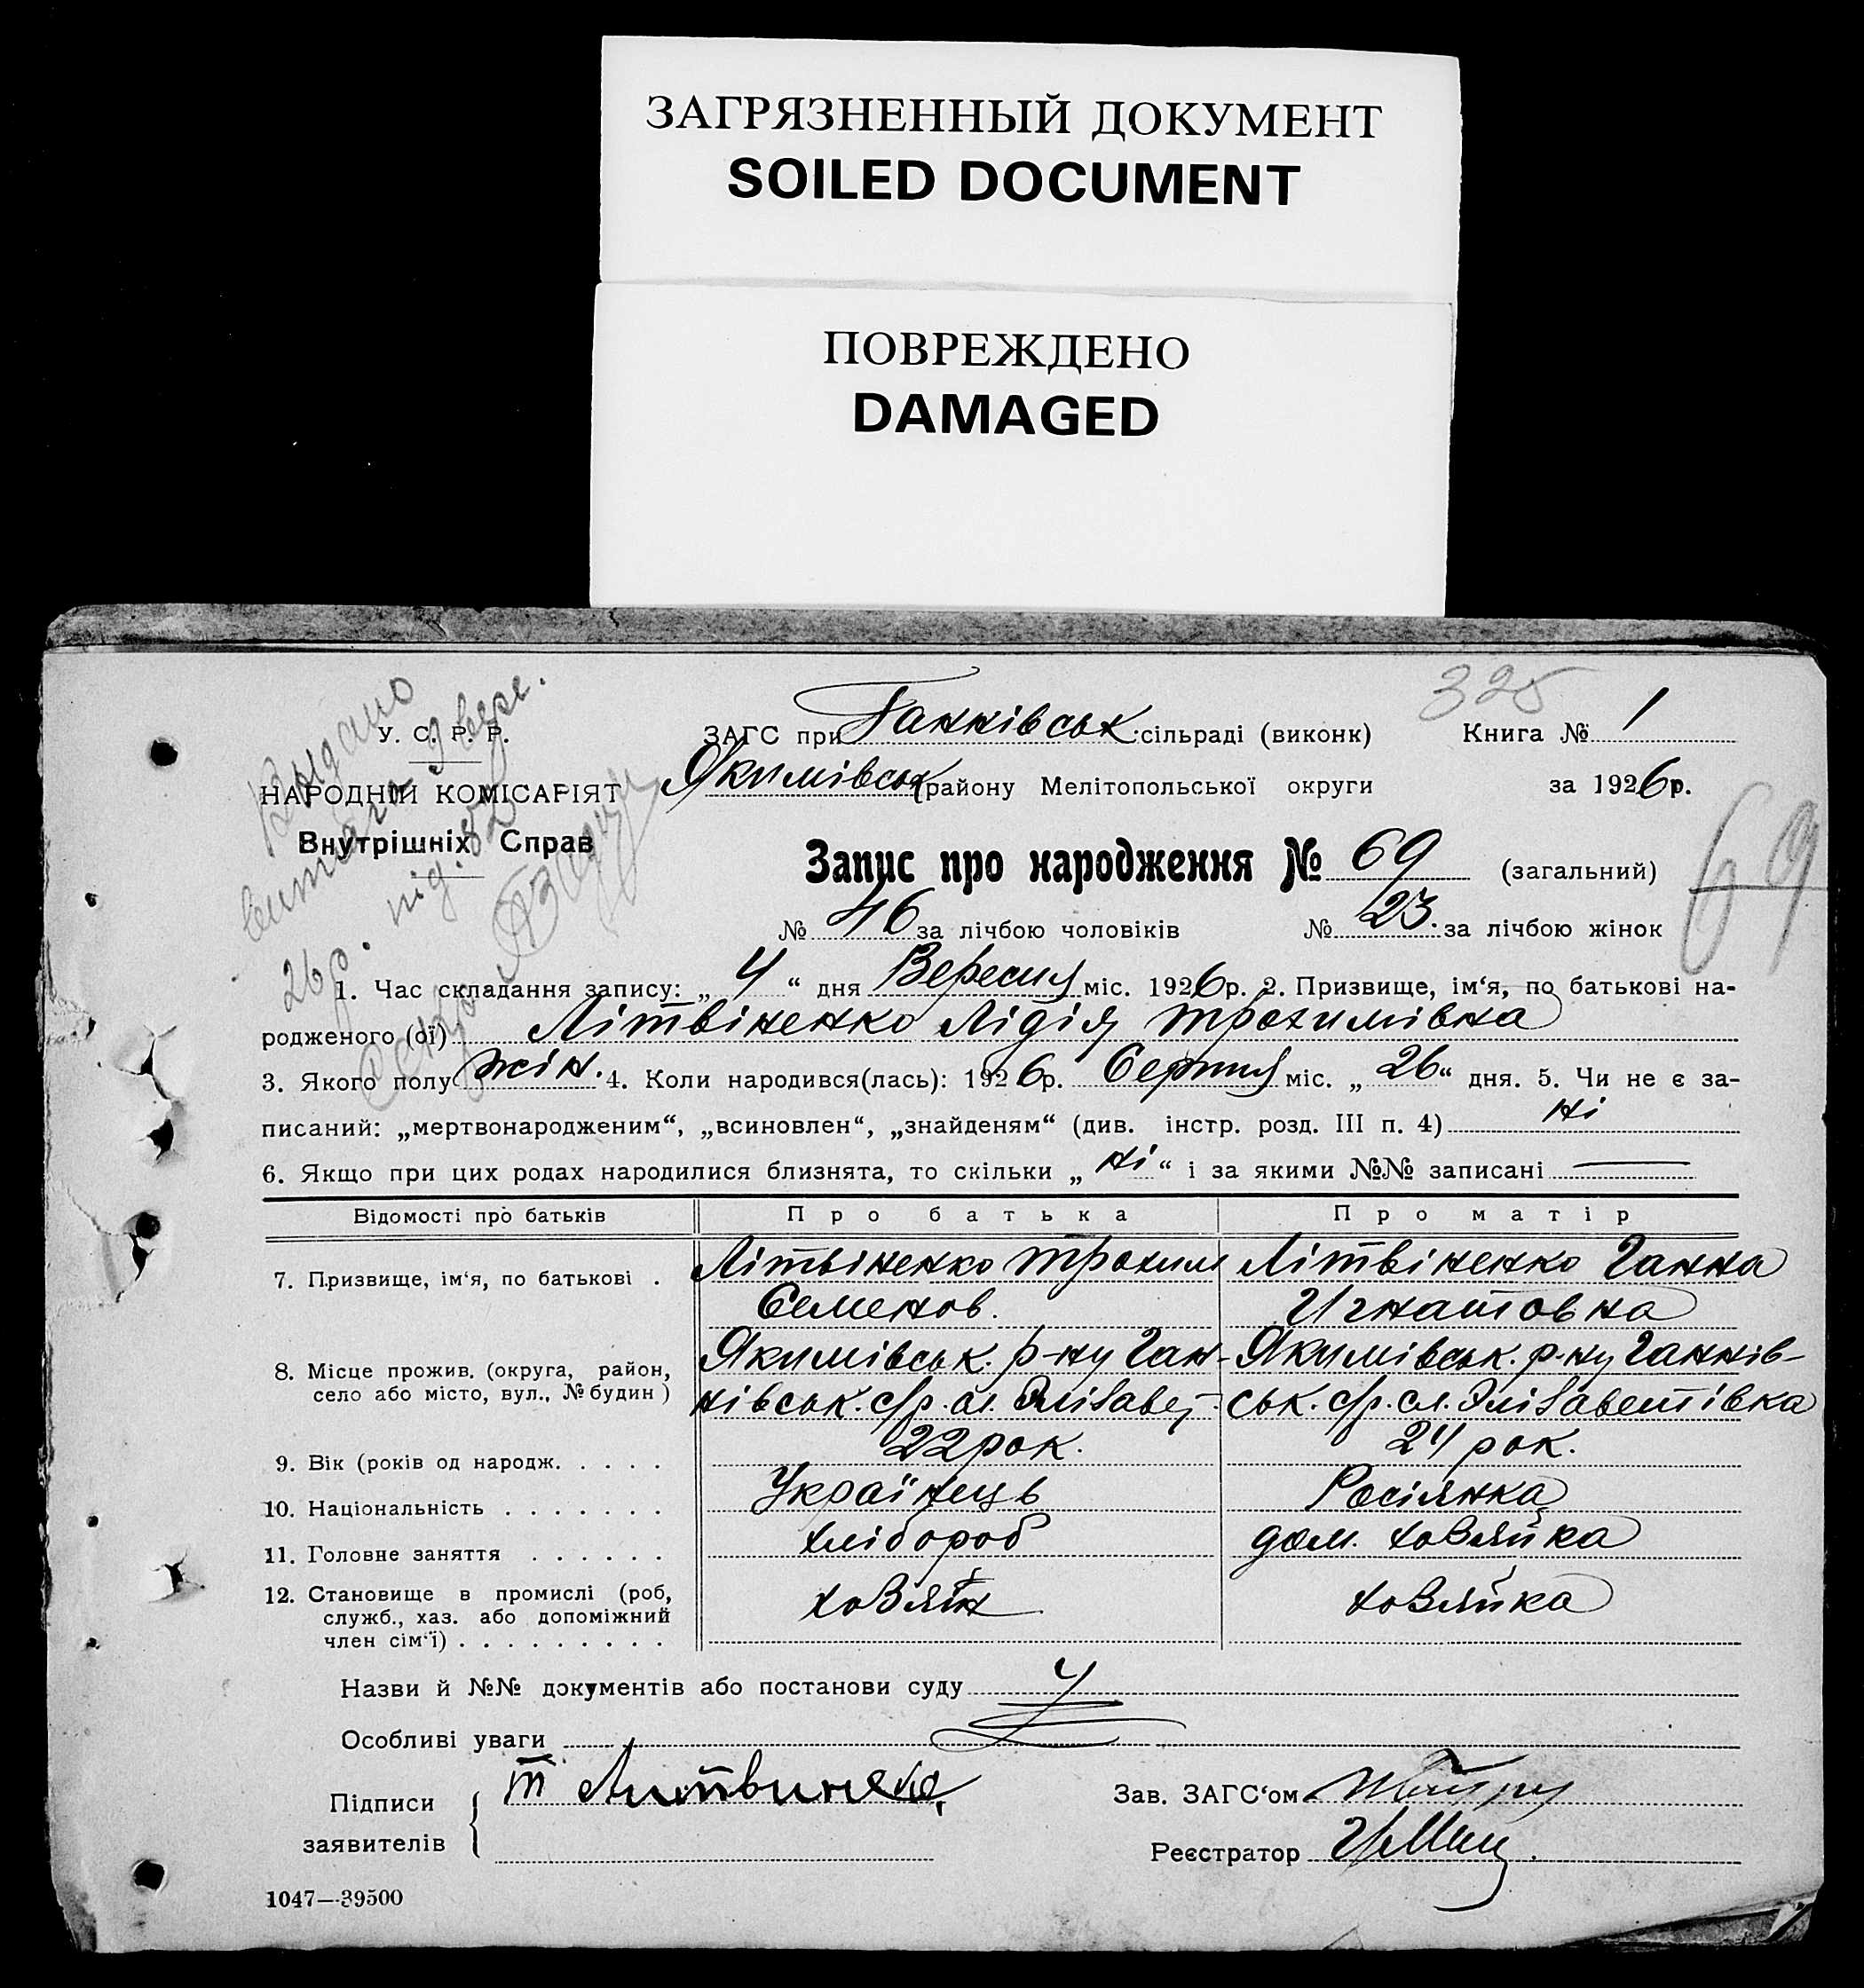 ЗАГРЯЗНЕННЫЙ ДОКУМЕНТ
SOILED DOCUMENT
ПОВРЕЖДЕНО
DAMAGED
325
У. С. Р. Р.
НАРОДНІЙ КОМІСАРІЯТ
Внутрішніх Справ
Видано
витяг 9 вере.
26р. під.
ЗАГС при Ганнівськ. сільраді (виконк) Книга № 1
Якимівськ району Мелітопольської округи за 1926р.
Запис про народження № 69 (загальний)
69
№ 46 за лічбою чоловіків № 23. за лічбою жінок
1. Час складання запису: „ 4 “ дня Вересня міс. 1926р. 2. Призвище, ім‘я, по батькові на-
родженого (ої) Літвіненко Лідія Трохимівна
3. Якого полу жін. 4. Коли народився(лась): 1926р. Серпня міс. „ 26 “ дня. 5. Чи не є за-
писаний: „мертвонародженим“, „всиновлен“, „знайденям“ (див. інстр. розд. III п. 4) ні
6. Якщо при цих родах народилися близнята, то скільки „ ні “ і за якими №№ записані —
Відомості про батьків Про батька Про матір
7. Призвище, ім‘я, по батькові . Літвіненко Трохим Літвіненко Ганна
Семенов. Игнатовна
8. Місце прожив. (округа, район, Якимівськ. р-ну Ган- Якимівськ. р-ну Ганнів-
село або місто, вул., № будин) нівськ. с/р. сл. Элізавет- ськ. с/р. сл. Элізаветівка
9. Вік (років од народж. . . . . 22 рок. 24 рок.
10. Національність . . . . . . . Українець Росіянка
11. Головне заняття . . . . . . хлібороб дом. хозяйка
12. Становище в промислі (роб,
служб., хаз. або допоміжний хозяїн хозяйка
член сім‘ї) . . . . . . . . .
Назви й №№ документів або постанови суду
Особливі уваги
Підписи Т Литвиненко Зав. ЗАГС‘ом
заявителів Реєстратор
1047—39500